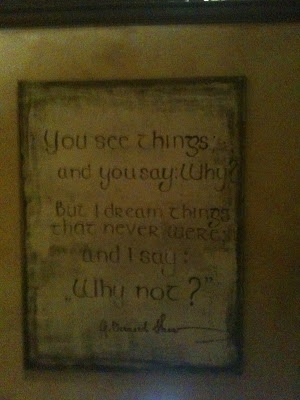 You see things;
and you say: Why?
But I dream things
that never were;
and I say:
"Why not?"
G. Bernard Shaw